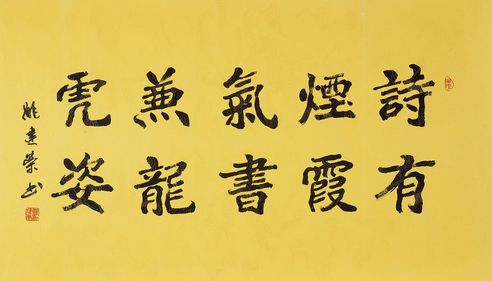 詩有
煙霞
氣書
兼龍
虎姿
姚建榮书